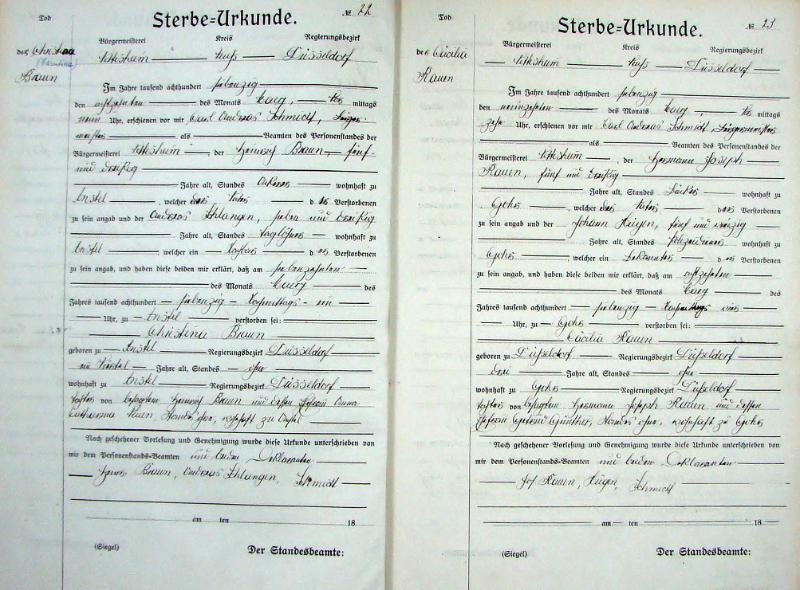 Tod
Sterbe-Urkunde.
№ 22
Bürgermeisterei Kreis Regierungsbezirk
der Christina
Braun
Düsseldorf
Im Jahre tausend achthundert siebenzig
den achtzehnten des Monats mittags
neun Uhr, erschienen vor mir Carl Andreas Schmidt, Bürger-
meister als Beamten des Personenstands der
Bürgermeisterei , der Heinrich Braun, fünf
und dreißig
Jahre alt, Standes Ackerer wohnhaft zu
Anstel, welcher der Vater der Verstorbenen
zu sein angab und der Andreas Schlangen, sieben und dreißig
Jahre alt, Standes Taglöhner wohnhaft zu
Anstel, welcher ein der Verstorbenen
zu sein angab, und haben diese beiden mir erklärt, daß am siebenzehnten
des Monats des
Jahres tausend achthundert siebenzig mittags ein
Uhr, zu Anstel verstorben sei:
Christina Braun
geboren zu Anstel Regierungsbezirk Düsseldorf
ein Jahre alt, Standes ohne
wohnhaft zu Anstel Regierungsbezirk Düsseldorf
Tochter von besagtem Heinrich Braun und dessen Ehefrau Anna
Catharina Standes ohne, wohnhaft zu Anstel
Nach geschehener Vorlesung und Genehmigung wurde diese Urkunde unterschrieben von
mir dem Personenstands-Beamten und beiden Deklaranten
Braun, Andreas Schlangen, Schmidt
am ten 18
(Siegel) Der Standesbeamte:
Tod
Sterbe-Urkunde.
№ 23
Bürgermeisterei Kreis Regierungsbezirk
der Cäcilia
Rauen
Düsseldorf
Im Jahre tausend achthundert siebenzig
den neunzehnten des Monats mittags
zehn Uhr, erschienen vor mir Carl Andreas Schmidt, Bürgermeister
als Beamten des Personenstands der
Bürgermeisterei , der Hermann Joseph
Rauen, fünf und dreißig
Jahre alt, Standes Bäcker wohnhaft zu
Gohr, welcher der Vater der Verstorbenen
zu sein angab und der Johann Hügen, fünf und
Jahre alt, Standes wohnhaft zu
Gohr, welcher ein Bekannter der Verstorbenen
zu sein angab, und haben diese beiden mir erklärt, daß am achtzehnten
des Monats des
Jahres tausend achthundert siebenzig mittags
Uhr, zu Gohr verstorben sei:
Cäcilia Rauen
geboren zu Düsseldorf Regierungsbezirk Düsseldorf
drei Jahre alt, Standes ohne
wohnhaft zu Gohr Regierungsbezirk Düsseldorf
Tochter von besagtem Hermann Joseph Rauen und dessen
Ehefrau Günther, Standes ohne, wohnhaft zu Gohr
Nach geschehener Vorlesung und Genehmigung wurde diese Urkunde unterschrieben von
mir dem Personenstands-Beamten und beiden Deklaranten
Jos Rauen, Hügen, Schmidt
am ten 18
(Siegel) Der Standesbeamte: